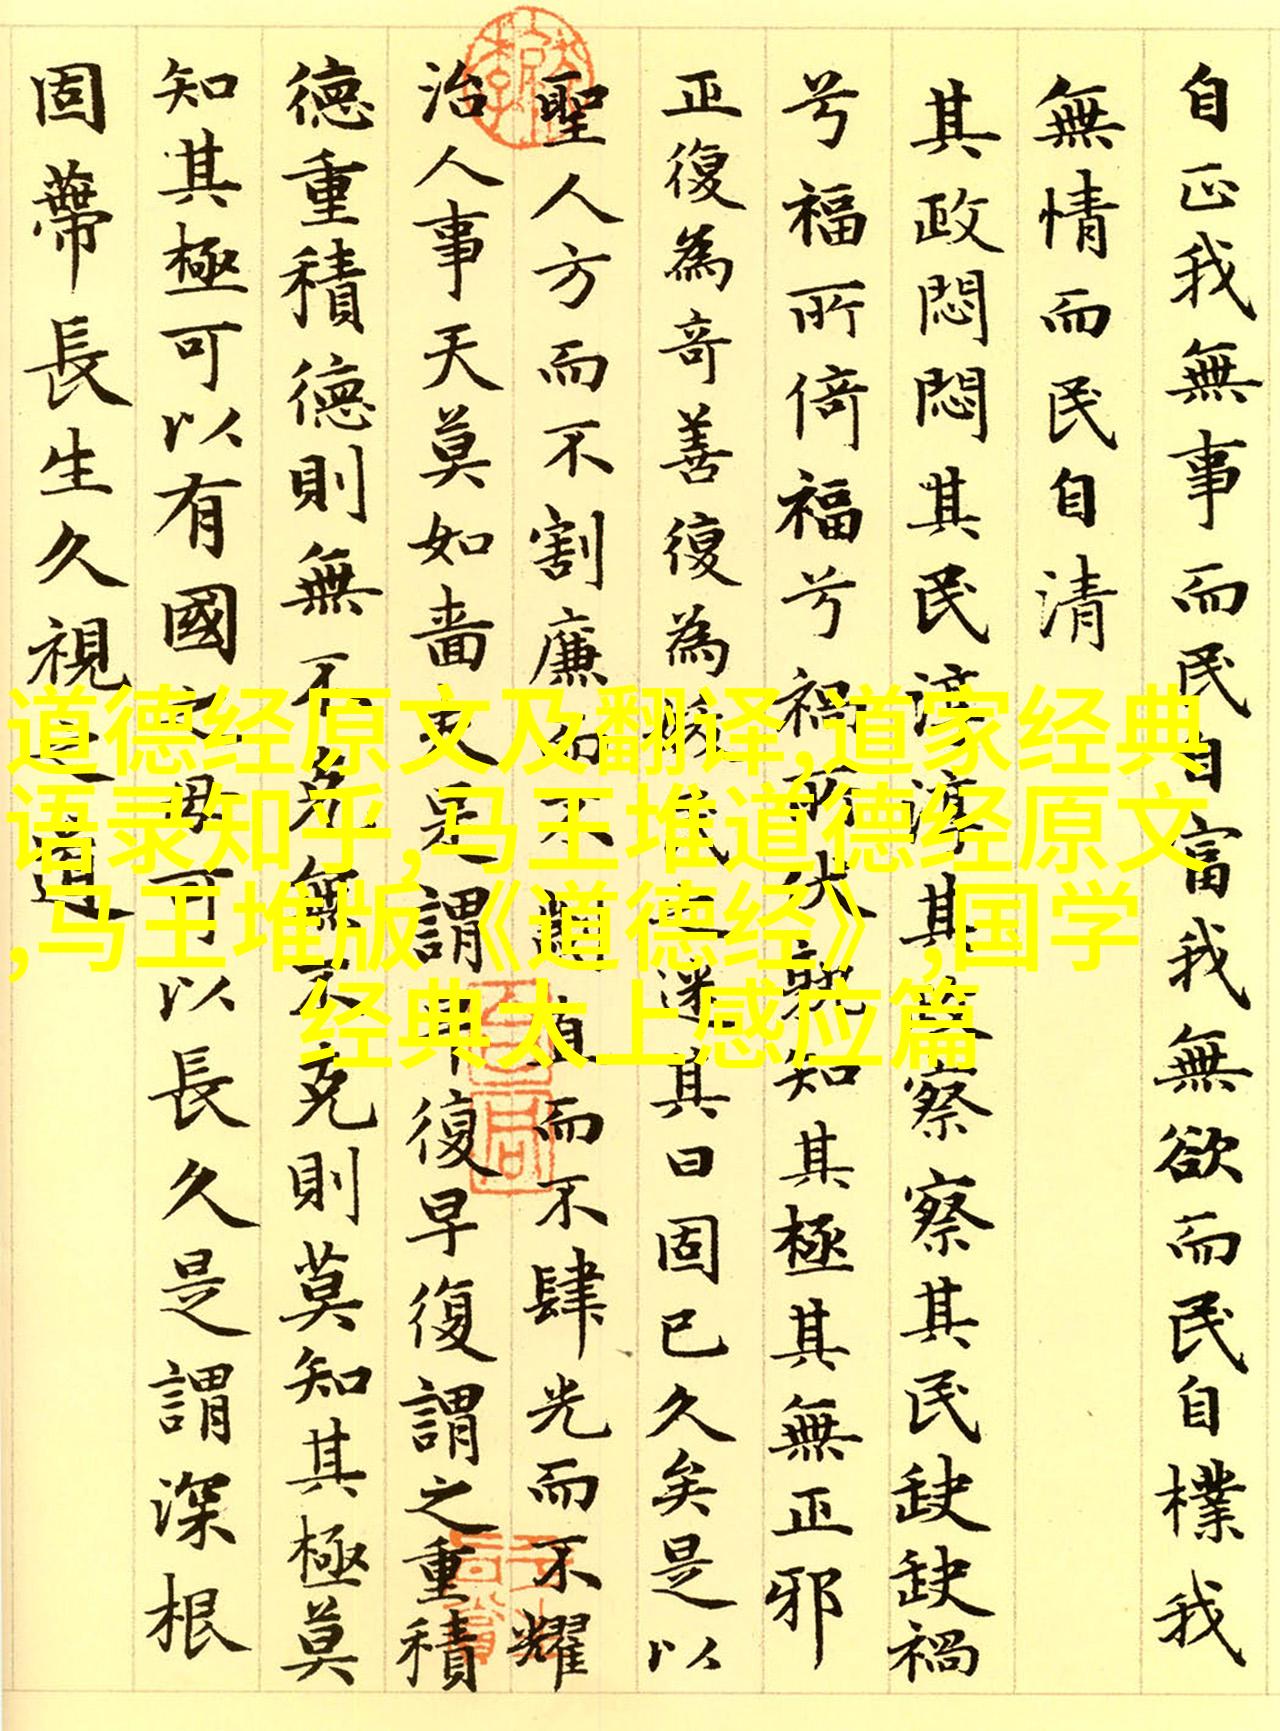 自正我無事而民自富我無欲而民自樸我
無情而民自清
其政悶悶其民淳淳其政察察其民缺缺禍
兮福所倚福兮禍所伏孰知其極其無正邪
正復為奇善復為妖民之迷其日固已久矣是以
聖人方而不割廉而不劌直而不肆光而不耀
治人事天莫如嗇夫是謂早復早復謂之重積
德重積德則無不克無不克則莫知其極莫
知其極可以有國之母可以長久是謂深根
固蔕長生久視之道
道德经原文及翻译,道家经典
语录知乎,马王堆道德经原文
,马王堆版《道德经》,国学
经典太上感应篇